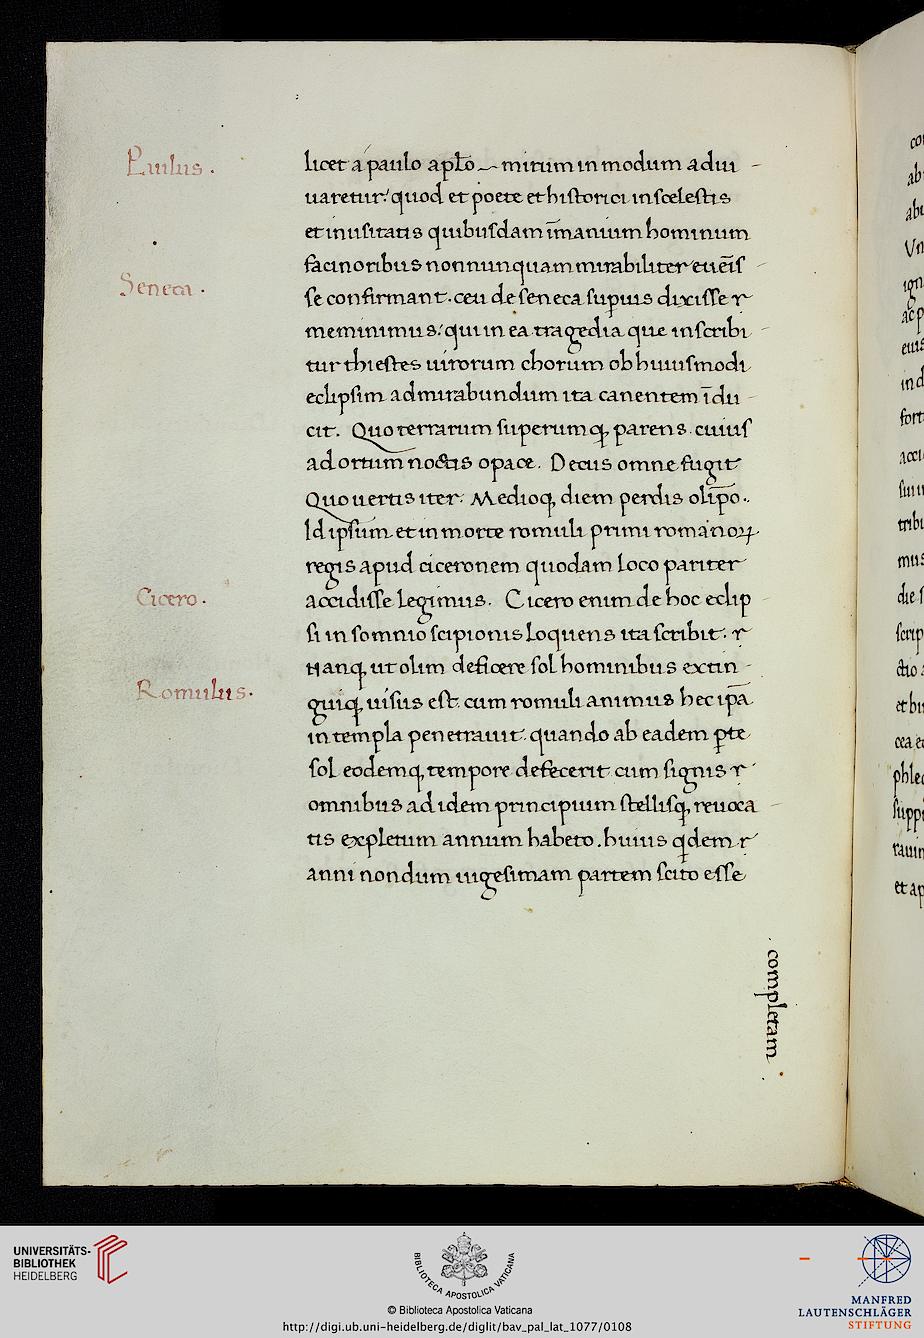 Paulus.
licet a paulo apl̄o mirum in modum adiu
uaretur: quod et poete et historici in scelestis
et inusitatis quibusdam īmanium hominum
facinoribus nonnunquam mirabiliter euēis
Seneca.
se confirmant. ceu de seneca superius dixisse
meminimus: qui in ea tragedia que inscribi
tur thiestes uirorum chorum ob huiusmodi
eclipsim admirabundum ita canentem īdu
cit. Quo terrarum superumq, parens. cuius
ad ortum noctis opace. Decus omne fugit
Quo uertis iter. Medioq, diem perdis olīpo.
Id ipsum et in morte romuli primi romanoꝝ
regis apud ciceronem quodam loco pariter
Cicero.
accidisse legimus. Cicero enim de hoc eclip
si in somnio scipionis loquens ita scribit.
Nanq, ut olim deficere sol hominibus extin
Romulus.
guiq, uisus est. cum romuli animus hec ip̄a
in templa penetrauit. quando ab eadem ꝑte
sol eodemq, tempore defecerit cum signis
omnibus ad idem principium stellisq, reuoca
tis expletum annum habeto. huius qdem
anni nondum uigesimam partem scito esse
completam
UNIVERSITÄTS-
BIBLIOTHEK
HEIDELBERG
BIBLIOTECA APOSTOLICA VATICANA
© Biblioteca Apostolica Vaticana
http://digi.ub.uni-heidelberg.de/diglit/bav_pal_lat_1077/0108
MANFRED
LAUTENSCHLÄGER
STIFTUNG